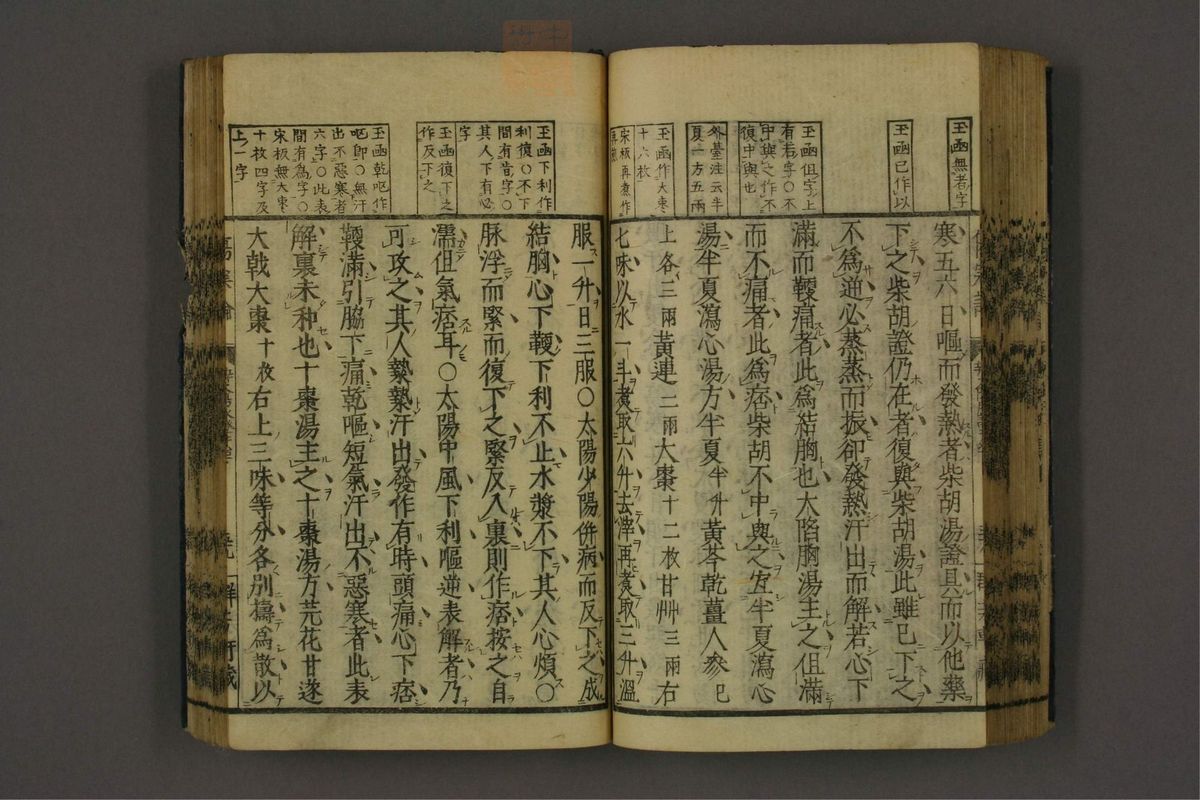 玉函無者字
玉函已作以
玉函但字上
有若字○不
中與之作不
復中與也
外臺注云半
夏一方五兩
玉函作大棗
十六枚
宋板再煮作
再煎
寒五六日嘔而發熱者柴胡湯證具而以他藥
下之柴胡證仍在者復與柴胡湯此雖已下之
不爲逆必蒸蒸而振卻發熱汗出而解若心下
滿而鞕痛者此爲結胸也大陷胸湯主之但滿
而不痛者此爲痞柴胡不中與之宜半夏瀉心
湯半夏瀉心湯方半夏半升黃芩乾薑人參已
上各三兩黃連二兩大棗十二枚甘艸三兩右
七味以水一斗煮取六升去滓再煮取三升溫
玉函下利作
利復○不下
間有皆字○
其人下有必
字
玉函復下之
作反下之
玉函乾嘔作
嘔卽○無汗
出不惡寒者
六字○此表
間有爲字○
宋板無大棗
十枚四字及
上一字
服一升日三服○太陽少陽併病而反下之成
結胸心下鞕下利不止水漿不下其人心煩○
脉浮而緊而復下之緊反入裏則作痞按之自
濡但氣痞耳○太陽中風下利嘔逆表解者乃
可攻之其人漐漐汗出發作有時頭痛心下痞
鞕滿引脇下痛乾嘔短氣汗出不惡寒者此表
解裏未和也十棗湯主之十棗湯方芫花甘遂
大戟大棗十枚右上三味等分各別擣爲散以